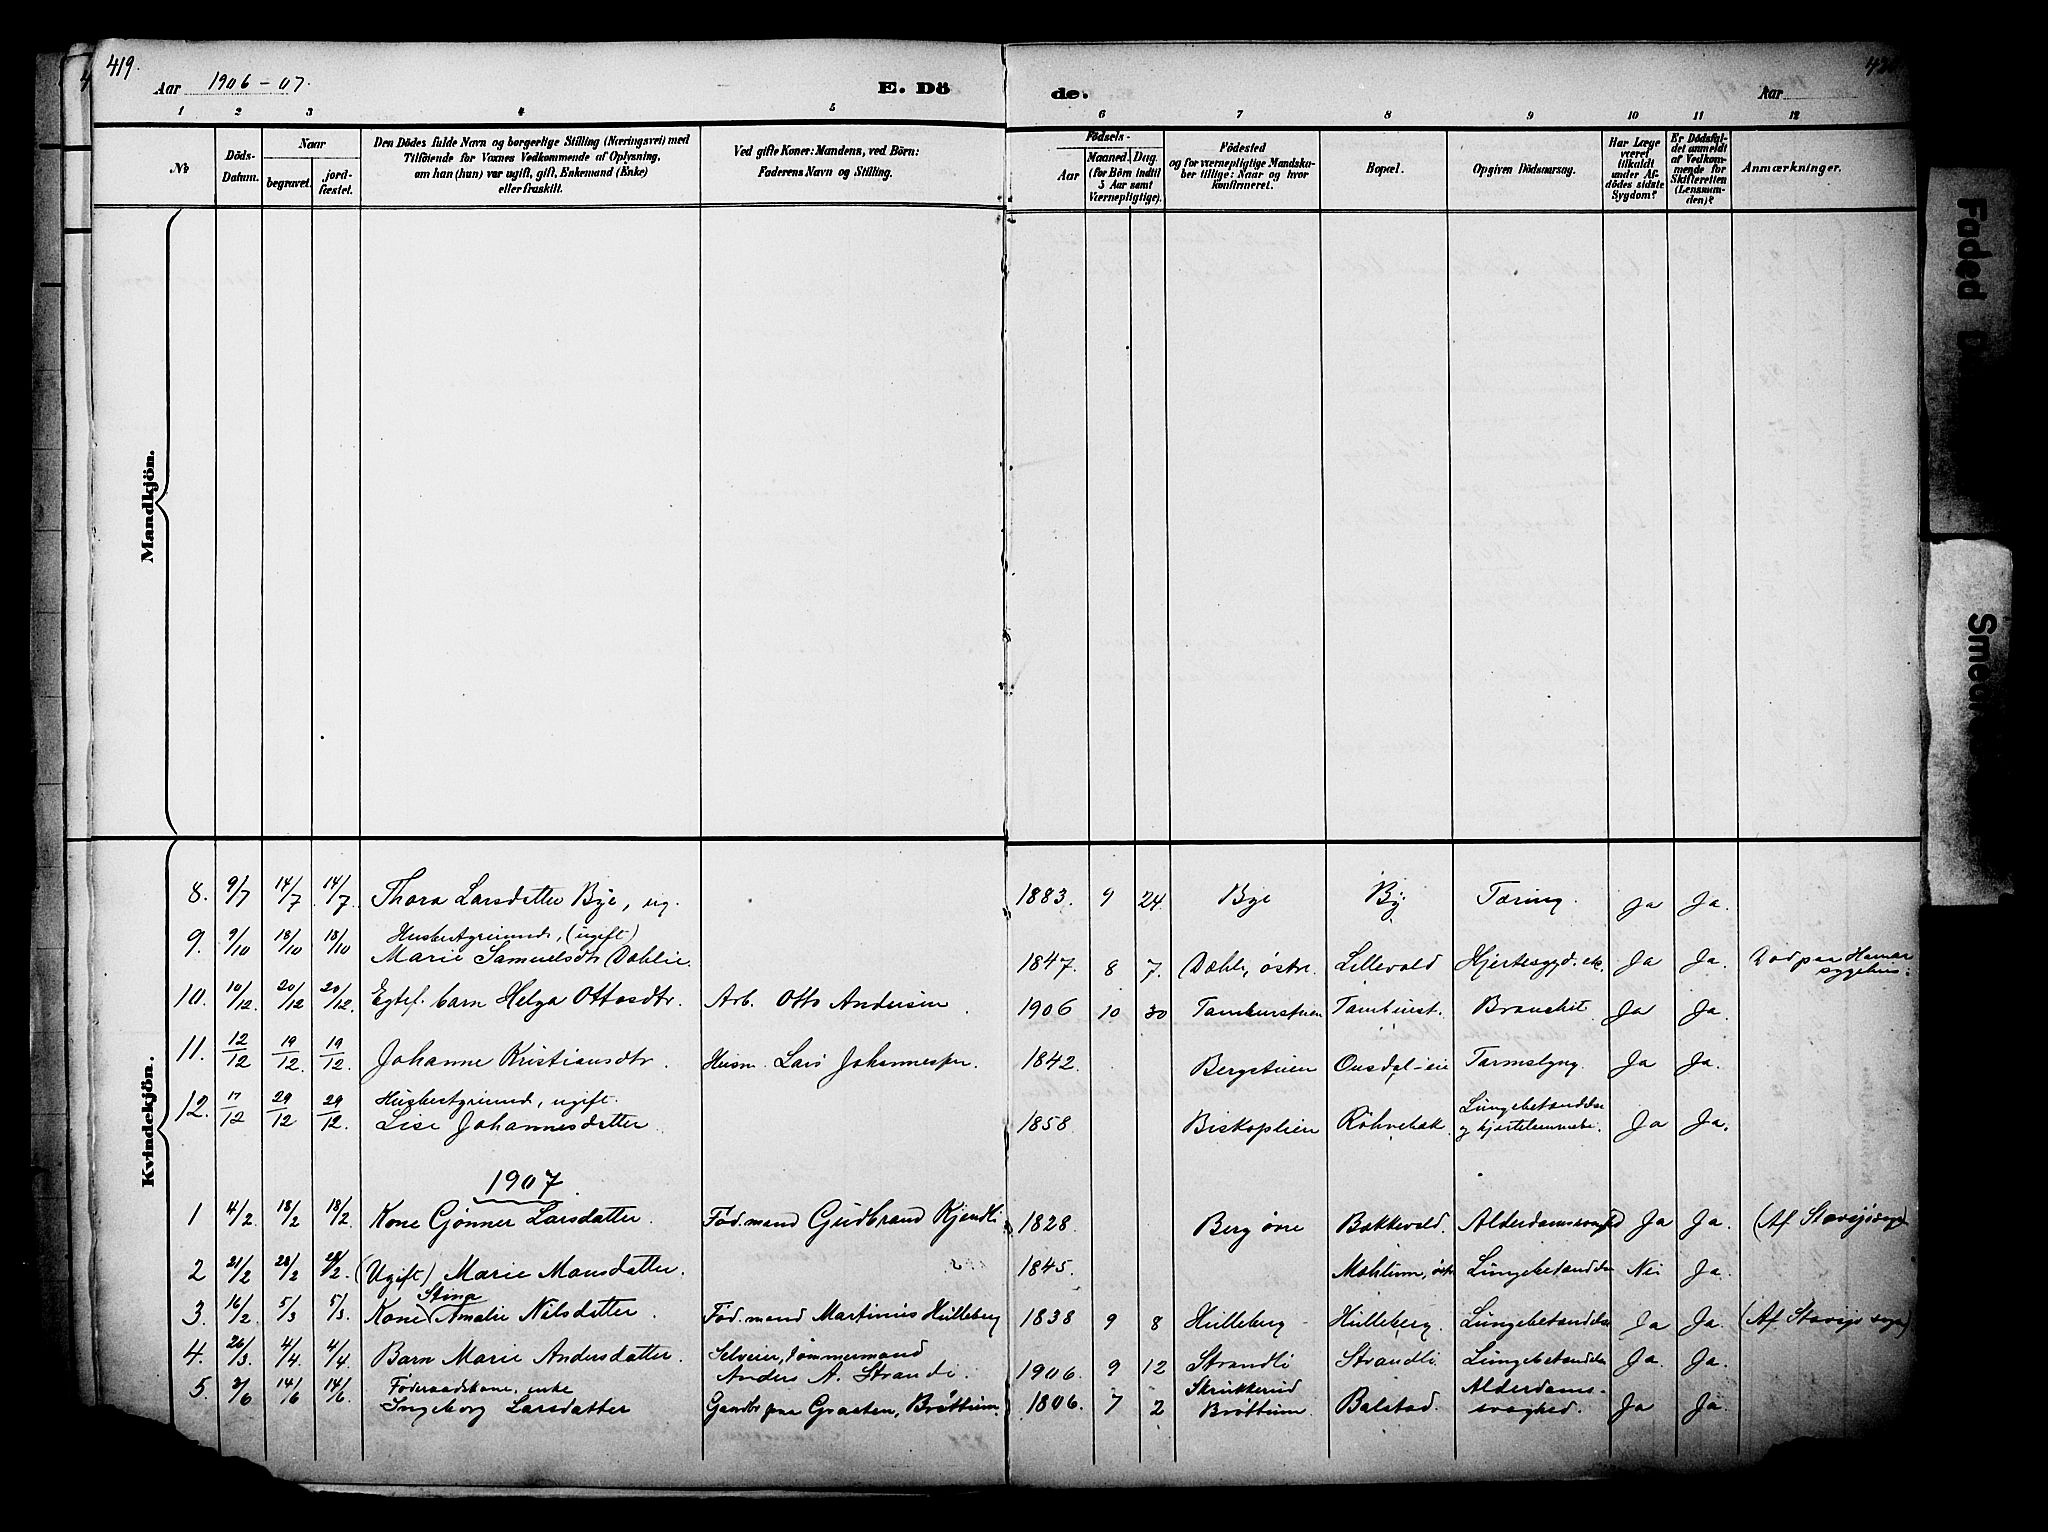 419.
Aar 1906-07.
E. Dö
de.
Aar
1 2 3 4 5 6 7 8 9 10 11 12
No
Döds-Datum.
Naar
begravet.
jord-fæstet.
Den Dödes fulde Navn og borgerlige Stilling (Næringsvei) med
Tilföiende for Voxnes Vedkommende af Oplysning,
om han (hun) var ugift, gift, Enkemand (Enke)
eller fraskilt.
Ved gifte Koner: Mandens, ved Börn:
Faderens Navn og Stilling.
Födsels-
Aar
Maaned. Dag.
(for Börn indtil
5 Aar samt
Værnepligtige).
Födested
og for værnepligtige Mandska-
ber tillige: Naar og hvor
konfirmeret.
Bopæl.
Opgiven Dödsaarsag.
Har Læge
været
tilkaldt
under Af-
dödes sidste
Sygdom?
Er Dödsfal-
det anmeldt
af Vedkom-
mende for
Skifteretten
(Lensman-
den)?
Anmærkninger.
Mandkjön.
Kvindekjön.
8. 9/7 14/7 14/7 Thora Larsdatter Bye, ug. 1883. 9 24. Bye By Tæring. Ja Ja.
9. 9/10 18/10 18/10 Husbestyrerinde, (ugift)
Marie Samuelsdtr Dæhlie. 1847. 8 7. Dæhli, østre. Lillevold Hjertesygd. Ja Ja. Død paa Hamar
sygehus.
10. 10/12. 20/12 20/12. Egtef. barn Helga Ottosdtr. Arb. Otto Andersen 1906 10 30 Tamburstuen Tamburst. Bronchit Ja Ja.
11. 12/12 19/12. 19/12. Johanne Kristiansdtr. Husm. Lars Johannessen. 1842. Bergstuen Onsdal-eie Tarmslyng. Ja Ja.
12. 17/12 29/12 29/12. Husbestyrerinde, ugift.
Lise Johannesdatter 1858 Biskoplien Röhnebæk. Lungebetændelse
og hjertelammelse. Ja Ja.
1907.
1 4/2. 18/2 18/2. Kone Gønner Larsdatter. Fød.mand Gudbrand Kjendli 1828. Berg øvre Bakkevold. Alderdomssvaghed Ja Ja.
2 21/2 28/2 28/2. (Ugift) Marie Monsdatter. 1845. Mæhlum, østre Lungebetændelse Nei Ja.
Stina
3. 16/2. 5/3 5/3. Kone Amalie Nilsdatter. Fød.mand Martinus Hulleberg 1838 9 8 Hulleberg Hulleberg. Lungebetændelse Ja Ja.
4. 26/3. 4/4 4/4. Barn Marie Andersdatter. Selveier, tømmermand
Anders A. Strandli. 1906. 9 12 Strandli Strandli. Lungebetændelse Ja. Ja
5. 3/6 14/6 14/6. Føderaadskone, enke
Ingeborg Larsdatter Gaardbr paa Grasten, Brøttum 1806. 7 2 Skrukkerud
Brøttum. Balstad. Alderdoms-
svaghed. Ja Ja.
Faded